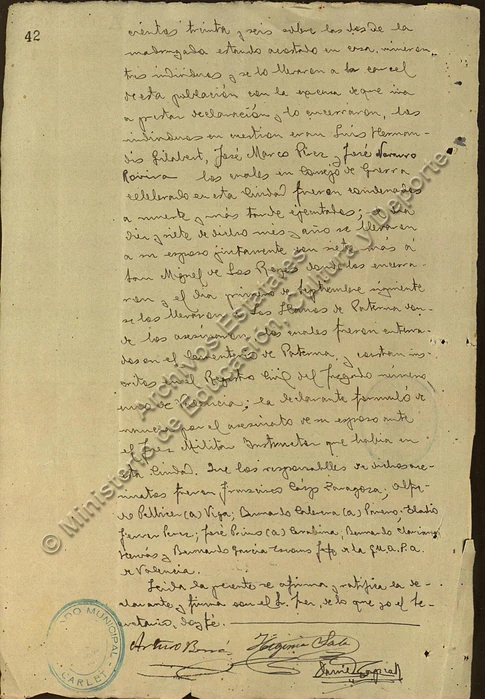 42
cientos treinta y seis sobre las dos de la
madrugada estando acostado en casa, vinieron
tres individuos y se lo llevaron a la carcel
de esta poblacion con la excusa de que iva
a prestar declaración y lo encerraron, los
individuos en cuestion eran Luis Hernan-
dis Gilabert, José Marco Pérez y José Navarro
los cuales en Consejo de Guerra
celebrado en esta Ciudad fueron condenados
a muerte y más tarde ejecutados; el dia
diez y siete de dicho mes y año se llevaron
a su esposo juntamente con siete más a
San Miguel de Los Reyes donde los encerra-
ron y el dia primero de Septiembre siguiente
se los llevaron a Los Llanos de Paterna don-
de los asesinaron, los cuales fueron enterra-
dos en el Cementerio de Paterna, y constan ins-
critos en el Registro Civil del Juzgado número
de Valencia; la declarante formuló de-
nuncia por el asesinato de su esposo ante
el Juez Militar Instructor que habia en
esta Ciudad. Que los responsables de dichos ase-
sinatos fueron Francisco Zaragoza;
(a) Viga; Bernardo (a)
José Primo (a) Bernardo
y Bernardo Garcia Jefe de la G.P.A.
de Valencia.
Leida la presente se afirma y ratifica la de-
clarante y firma con el Sr. Juez, de lo que yo el Se-
cretario, doy fé.
Arturo Higinia Sala
Daniel
JUZGADO MUNICIPAL
CARLET
© Ministerio de Educación, Cultura y Deporte
Archivos Estatales